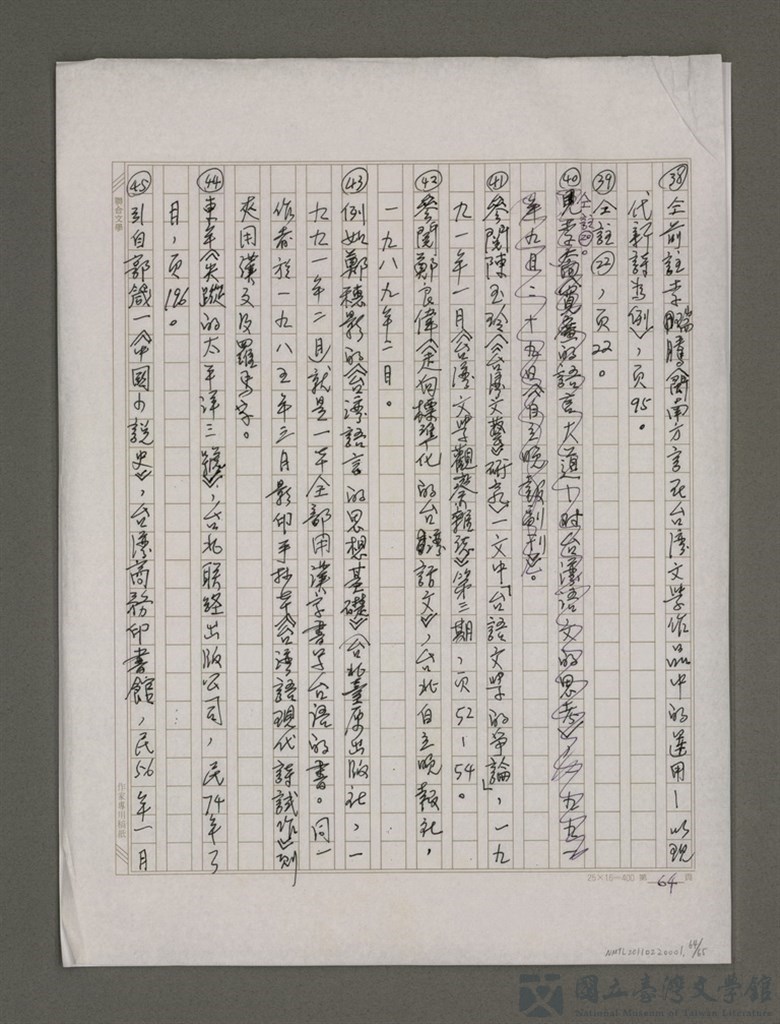 ㊳仝前註李瑞騰〈閩南方言在台灣文學作品中的運用—以現
代新詩為例〉，頁95。
㊴仝註㉒，頁22。
㊵仝註㉒。
見李喬〈寬廣的語言大道—對台灣語文的思考〉，一九九一
年九月二十九日《自立晚報副刊》。
㊶參閱陳玉玲〈《台灣文藝》研究〉一文中「台語文學的爭論」，一九
九一年一月《台灣文學觀察雜誌》第三期，頁52—54。
㊷參閱鄭良偉《走向標準化的台灣話文》，台北自立晚報社，
一九八九年二月。
㊸例如鄭穗影的《台灣語言的思想基礎》（台北臺原出版社，一
九九一年二月）就是一本全部用漢字書寫台語的書。同一
作者於一九八五年三月影印手抄本《台灣語現代詩試作》則
夾用漢文及羅馬字。
㊹東年《失蹤的太平洋三號》，台北聯經出版公司，民74年3
月，頁186。
㊺引自郭箴一《中國小說史》，台灣商務印書館，民56年一月
聯合文學
作家專用稿紙
25×16=400 第 64 頁
NMTL20110220001, 64/65
國立臺灣文學館
National Museum of Taiwan Literature